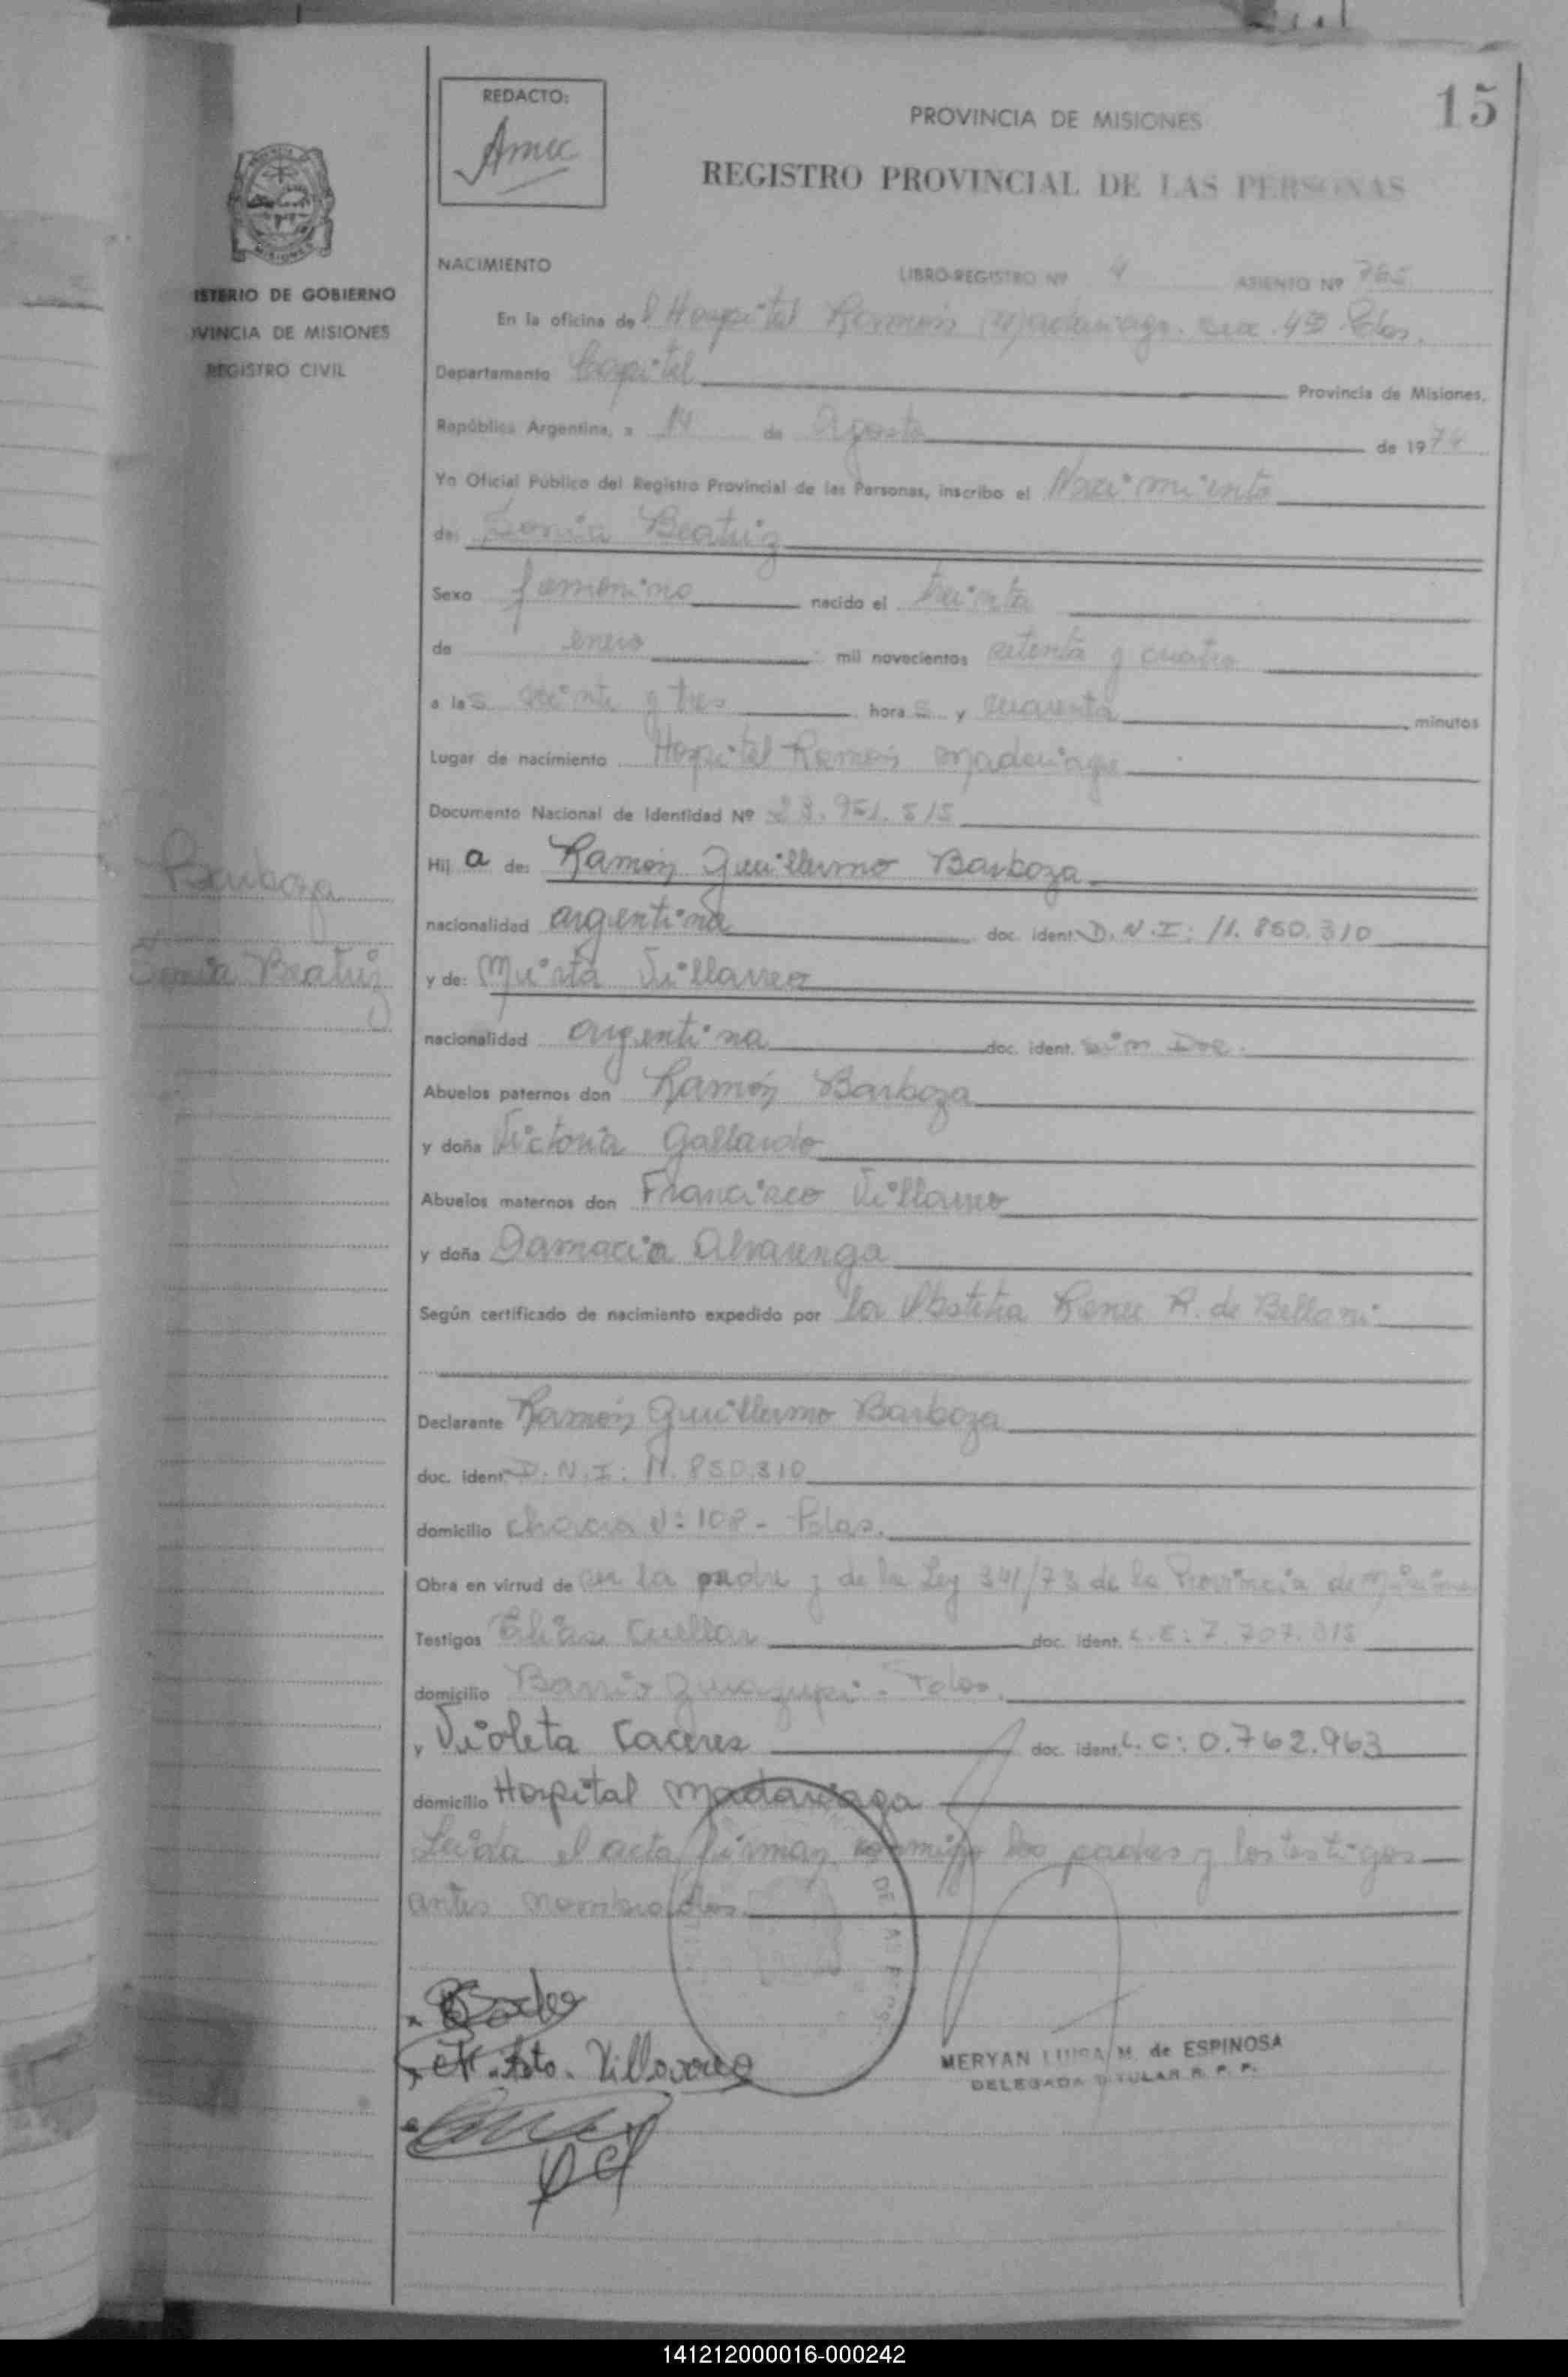 15
REDACTO:
PROVINCIA DE MISIONES
REGISTRO PROVINCIAL DE LAS PERSONAS
ISTERIO DE GOBIERNO
IVINCIA DE MISIONES
REGISTRO CIVIL
NACIMIENTO LIBRO-REGISTRO Nº 4 ASIENTO Nº 765
En la oficina del Hospital Ramón Madariaga. secc. 4ta Pdas.
Departamento Capital Provincia de Misiones,
República Argentina, a 14 de Agosto de 1974
Yo Oficial Público del Registro Provincial de las Personas, inscribo el Nacimiento
de: Sonia Beatriz
Sexo femenino nacido el treinta
de enero mil novecientos setenta y cuatro
a las veinte y tres horas y cuarenta minutos
Lugar de nacimiento Hospital Ramón Madariaga
Documento Nacional de Identidad Nº 23.951.515
Barboza
Sonia Beatriz
Hija de: Ramón Guillermo Barboza
nacionalidad argentina doc. ident. D.N.I: 11.850.310
y de: Mirta Villarreo
nacionalidad argentina doc. ident. sin Doc.
Abuelos paternos don Ramón Barboza
y doña Victoria Gallardo
Abuelos maternos don Francisco Villarreo
y doña Damacia Alvarenga
Según certificado de nacimiento expedido por la Obstetra Renee R. de Belloni
Declarante Ramón Guillermo Barboza
doc. ident. D.N.I: 11.850.310
domicilio chacra N: 108 - Pdas.
Obra en virtud de ser la padre y de la Ley 341/73 de la Provincia de Misiones
Testigos Elisa Cuellar doc. ident. L.E: 7.707.315
domicilio Barrio - Pdas.
y Violeta Caceres doc. ident. L.C: 0.762.963
domicilio Hospital Madariaga
Leida el acta firman conmigo los padres y los testigos
antes nombrados.
MERYAN LUISA M. de ESPINOSA
DELEGADA TITULAR R. P. P.
141212000016-000242